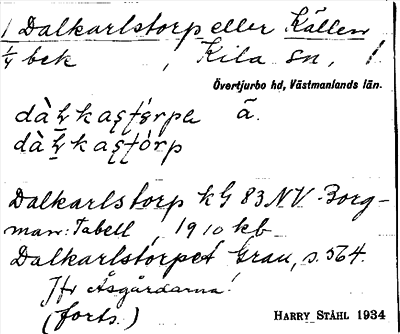 1 Dalkarlstorp eller Källen
1/4 bek , Kila sn, 1
Övertjurbo hd, Västmanlands län.
ä.
Dalkarlstorp kG 83 NV. Borg-
man: Tabell, 1910 kb
Dalkarlstorpet Grau, s. 564.
Jfr Åsgårdarna!
(forts.)
HARRY STÅHL 1934